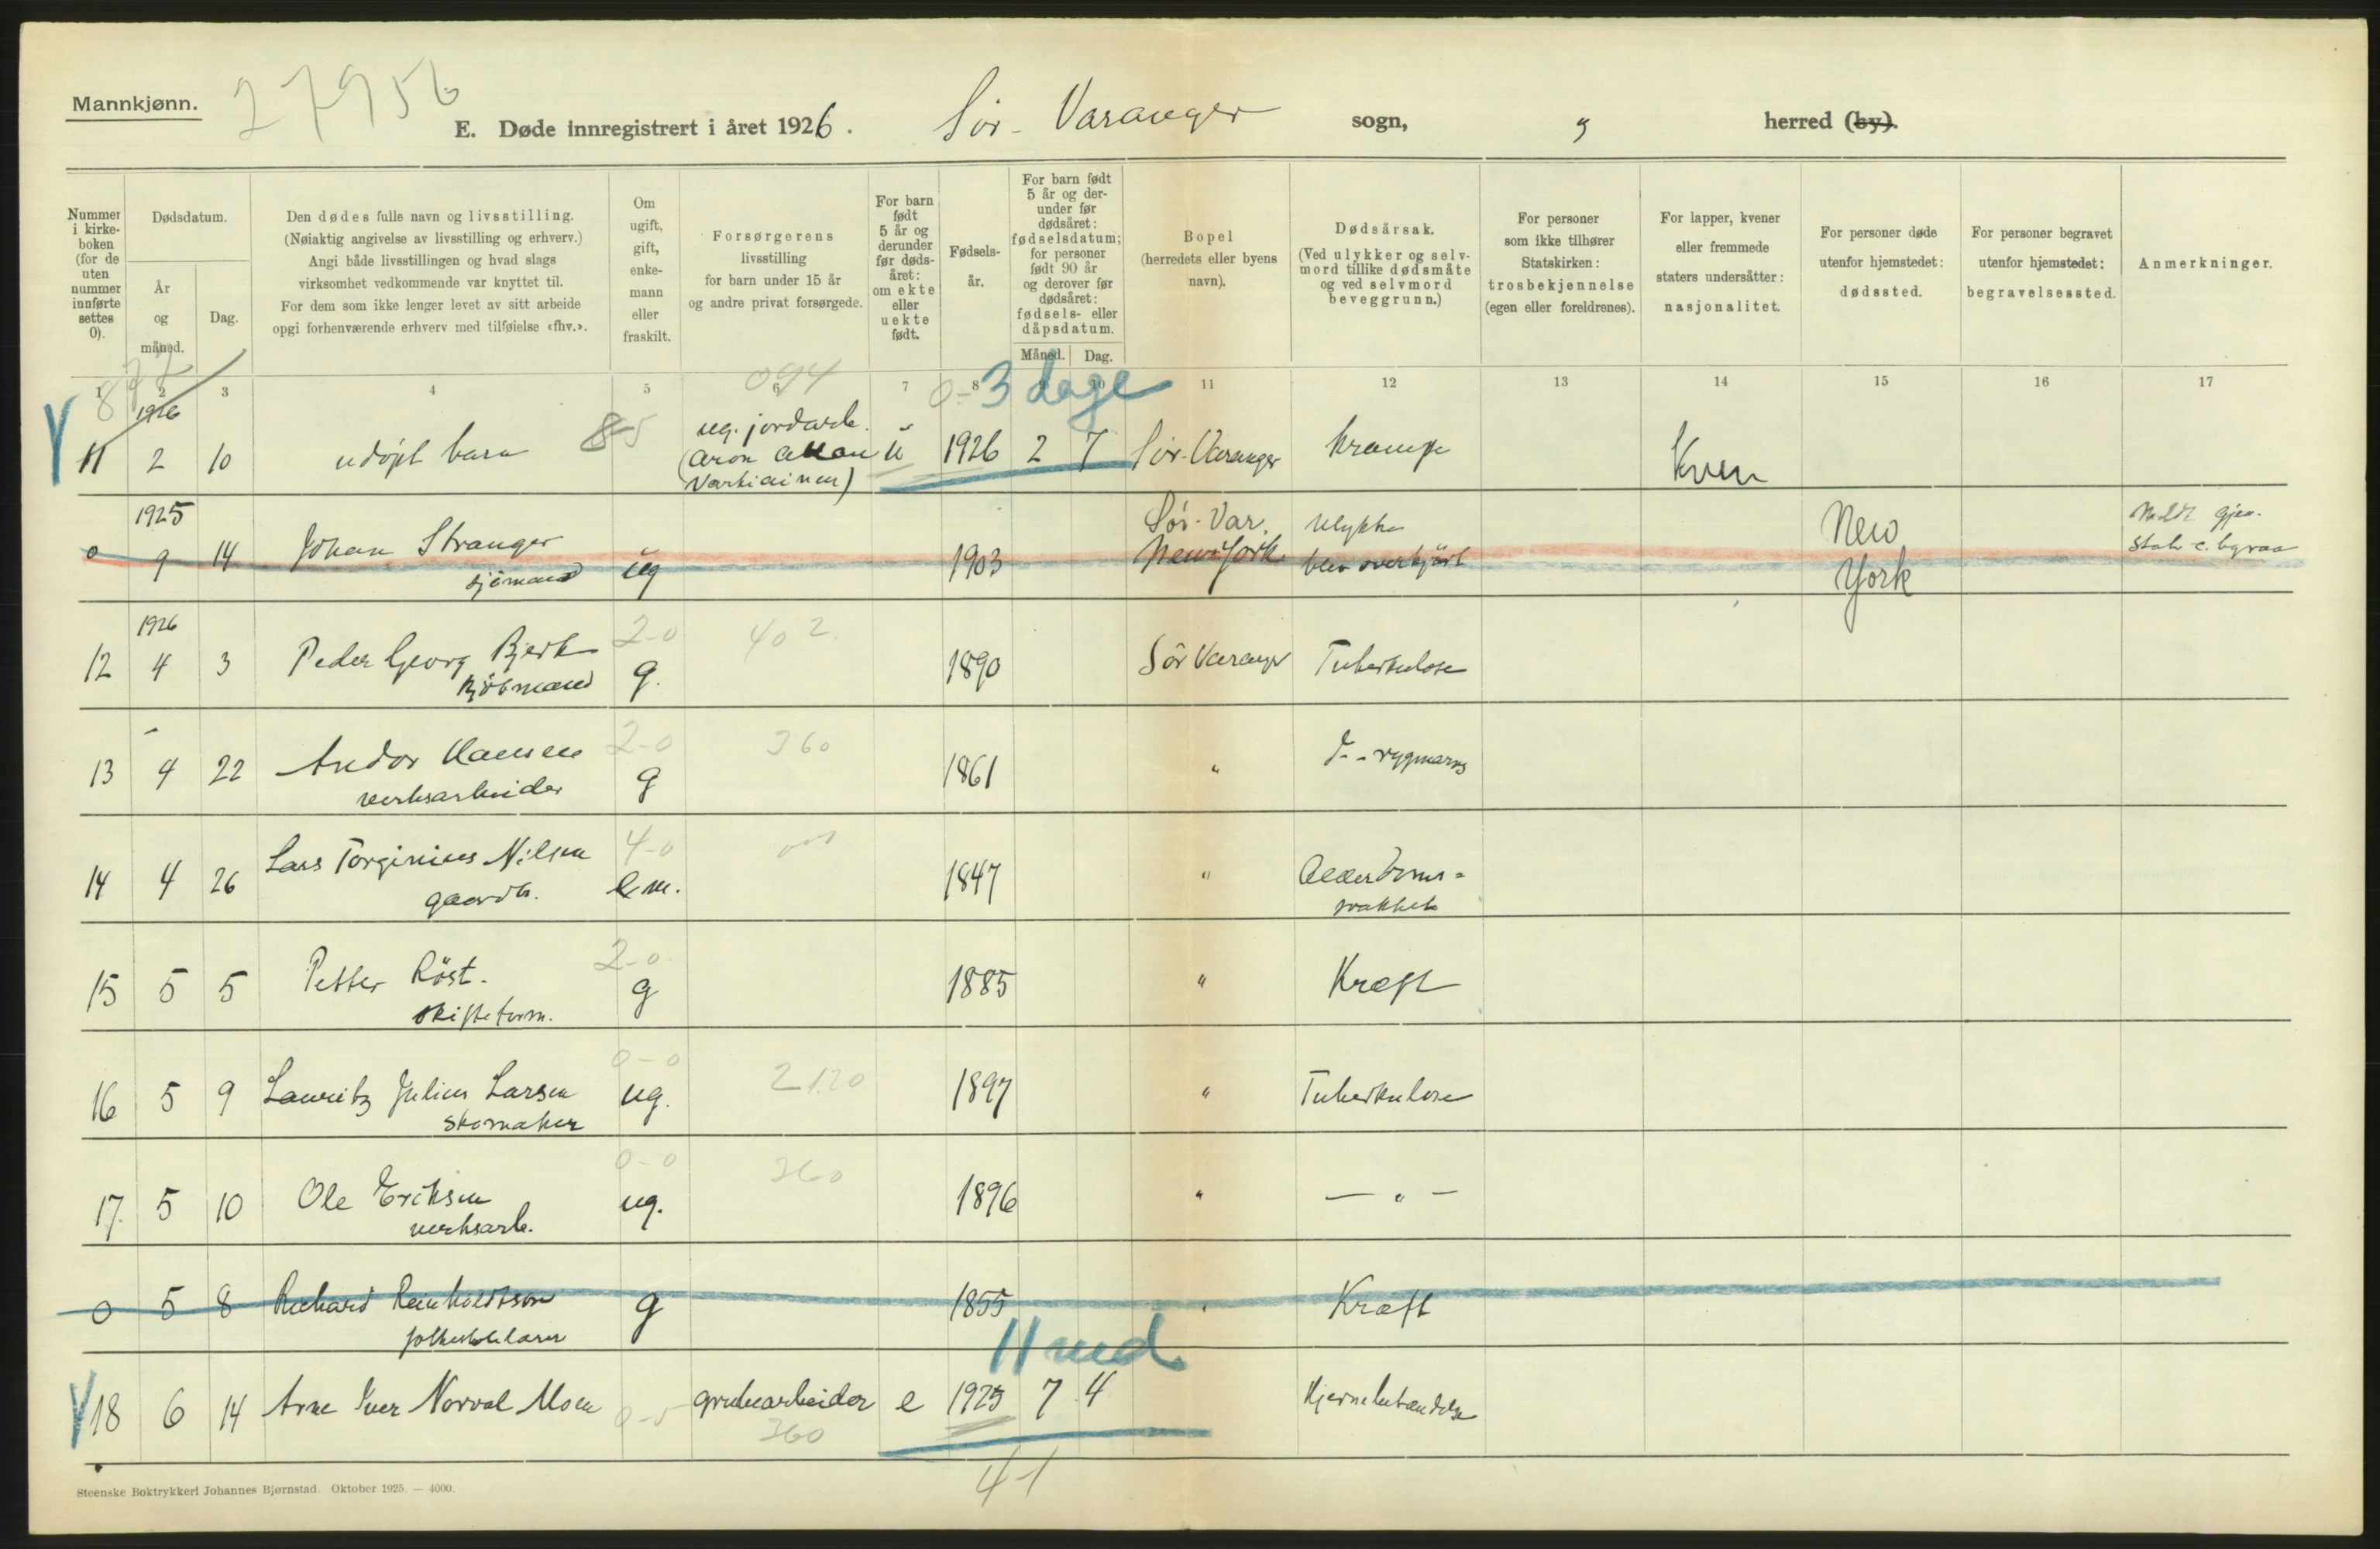 Mannkjønn.
27956
E. Døde innregistrert i året 1926. Sör-Varanger sogn, herred (by).
Nummer i kirke-boken (for de uten nummer innførte settes 0).
Dødsdatum.
År og måned.
Dag.
Den dødes fulle navn og livsstilling.
(Nøiaktig angivelse av livsstilling og erhverv.)
Angi både livsstillingen og hvad slags
virksomhet vedkommende var knyttet til.
For dem som ikke lenger levet av sitt arbeide
opgi forhenværende erhverv med tilføielse «fhv.».
Om ugift, gift, enke-mann eller fraskilt.
Forsørgerens
livsstilling
for barn under 15 år
og andre privat forsørgede.
For barn født 5 år og derunder før døds-året: om ekte eller uekte født.
Fødsels-år.
For barn født 5 år og der-under før dødsåret: fødselsdatum; for personer født 90 år og derover før dødsåret: fødsels- eller dåpsdatum.
Måned. Dag.
Bopel
(herredets eller byens
navn).
Dødsårsak.
(Ved ulykker og selv-
mord tillike dødsmåte
og ved selvmord
beveggrunn.)
For personer
som ikke tilhører
Statskirken:
trosbekjennelse
(egen eller foreldrenes).
For lapper, kvener
eller fremmede
staters undersåtter:
nasjonalitet.
For personer døde
utenfor hjemstedet:
dødssted.
For personer begravet
utenfor hjemstedet:
begravelsessted.
Anmerkninger.
1 2 3 4 5 6 7 8 9 10 11 12 13 14 15 16 17
094
0- 3 dage
1926
11 2 10 udöpt barn ug. jordarb. u 1926 2 7 Sör-Varanger krampe Kven
(Aron
1925
0 9 14 Johan Stranger ug 1903 Sör-Var. Ulykke New
sjömand New York blev overkjört York
1926
12 4 3 Peder Georg Bjerk 2-0 g. 402. 1890 Sör Varanger Tuberkulose
kjöbmand
13 4 22 Andor Hansen 2-0 g 360 1861 " rygmarvs
verksarbeider
14 4 26 Lars Torginius Nilsen 4-0 e.m. 1847 " Alderdoms-
gaardb. svakhet
15 5 5 Petter Röst. 2-0 g 1885 " Kræft
skifteform.
16 5 9 Lauritz Julius Larsen 0-0 ug. 2120 1897 " Tuberkulose
skomaker
17. 5 10 Ole Eriksen 0-0 ug. 360 1896 " — " —
verksarb.
0 5 8 Richard Reinholdtsen g 1855 " Kræft
folkeskolelærer
11 md.
18 6 14 Arne Iver Norval Moen 0-5 grubearbeider e 1925 7 4 Hjernebetændelse
360
41
Steenske Boktrykkeri Johannes Bjørnstad. Oktober 1925. — 4000.